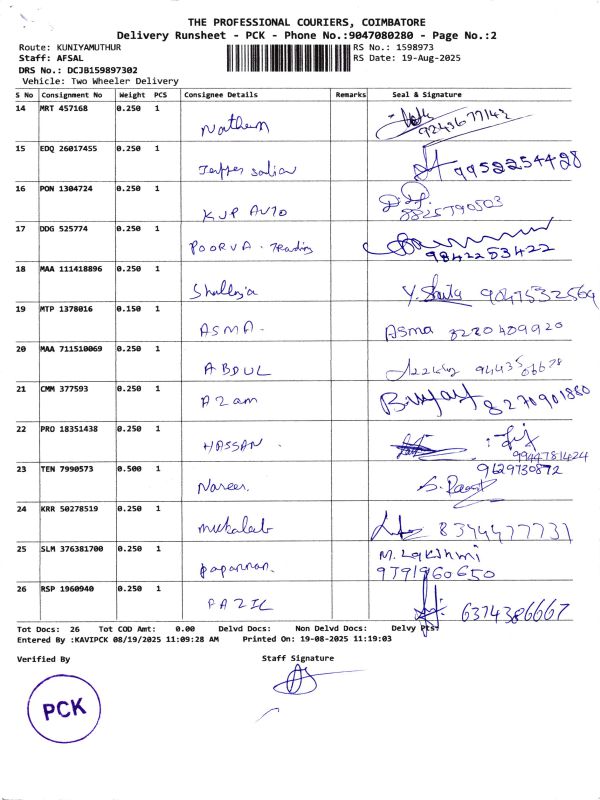 THE PROFESSIONAL COURIERS, COIMBATORE
Delivery Runsheet - PCK - Phone No.:9047080280 - Page No.:2
Route: KUNIYAMUTHUR RS No.: 1598973
Staff: AFSAL RS Date: 19-Aug-2025
DRS No.: DCJB159897302
Vehicle: Two Wheeler Delivery
S No Consignment No Weight PCS Consignee Details Remarks Seal & Signature
14 MRT 457168 0.250 1
9243677142
15 EDQ 26017455 0.250 1
9952254428
16 PON 1304724 0.250 1 KVP AUTO
8825790503
17 DDG 525774 0.250 1 POORVA. Trading
9842253422
18 MAA 111418896 0.250 1 Shalloja Y. 9047532569
19 MTP 1378016 0.150 1 ASMA. Asma 8220409920
20 MAA 711510069 0.250 1 ABDUL
21 CMM 377593 0.250 1 Azam 8270901880
22 PRO 18351438 0.250 1 HASSAN.
9944781424
23 TEN 7990573 0.500 1 Nareen. 9629730872
24 KRR 50278519 0.250 1 8374477731
25 SLM 376381700 0.250 1 M. Lakshmi
paparman. 9791960650
26 RSP 1960940 0.250 1 FAZIL 6374386667
Tot Docs: 26 Tot COD Amt: 0.00 Delvd Docs: Non Delvd Docs: Delvy Pts:
Entered By :KAVIPCK 08/19/2025 11:09:28 AM Printed On: 19-08-2025 11:19:03
Verified By Staff Signature
PCK